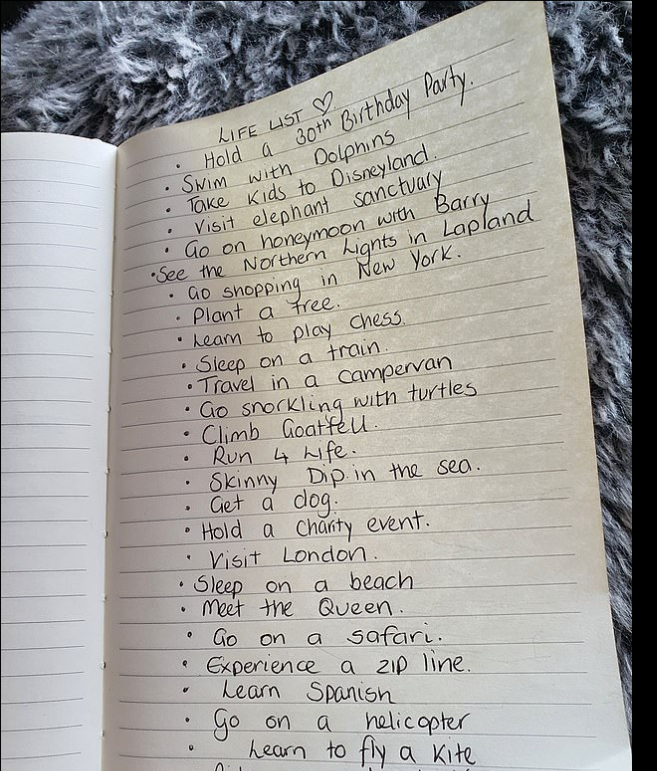 LIFE LIST ♡
• Hold a 30th Birthday Party.
• Swim with Dolphins
• Take Kids to Disneyland.
• Visit elephant sanctuary
• Go on honeymoon with Barry
• See the Northern Lights in Lapland
• Go shopping in New York.
• Plant a tree.
• Learn to play chess.
• Sleep on a train.
• Travel in a campervan
• Go snorkling with turtles
• Climb Goatfell.
• Run 4 Life.
• Skinny Dip in the sea.
• Get a dog.
• Hold a charity event.
• Visit London.
• Sleep on a beach
• Meet the Queen.
• Go on a safari.
• Experience a zip line.
• Learn Spanish
• Go on a helicopter
• Learn to fly a kite